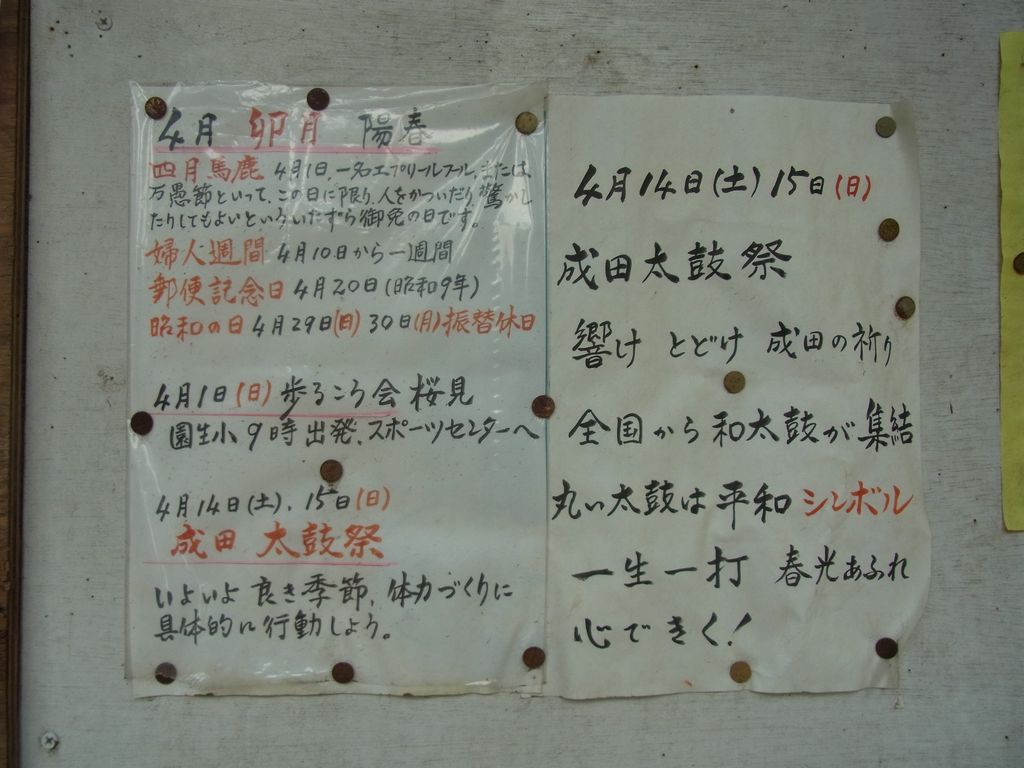 4月 卯月 陽春
四月馬鹿 4月1日、一名エプリールフール、または
万愚節といって、この日に限り、人をかついだり、驚かし
たりしてもよいといういたずら御免の日です。
婦人週間 4月10日から一週間
郵便記念日 4月20日(昭和9年)
昭和の日 4月29日(日) 30日(月)振替休日
4月1日(日) 歩るこう会 桜見
園生小9時出発、スポーツセンターへ
4月14日(土)、15日(日)
成田 太鼓祭
いよいよ良き季節、体力づくりに
具体的に行動しよう。
4月14日(土)15日(日)
成田太鼓祭
響け とどけ 成田の祈り
全国から和太鼓が集結
丸い太鼓は平和 シンボル
一生一打 春光あふれ
心できく!